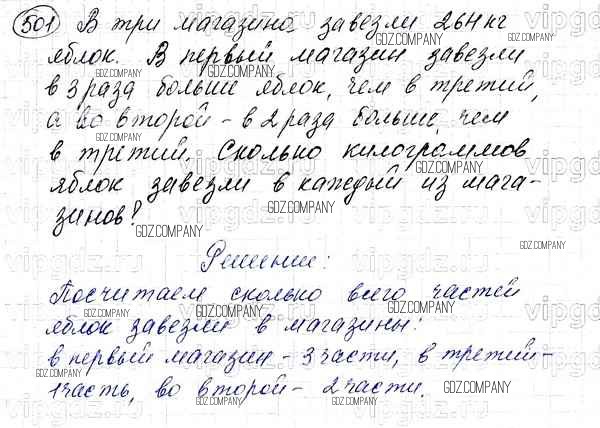 501 В три магазина завезли 264 кг
яблок. В первый магазин завезли
в 3 раза больше яблок, чем в третий,
а во второй - в 2 раза больше, чем
в третий. Сколько килограммов
яблок завезли в каждый из мага-
зинов?
Решение:
Посчитаем сколько всего частей
яблок завезли в магазины:
в первый магазин - 3 части, в третий -
1 часть, во второй - 2 части.